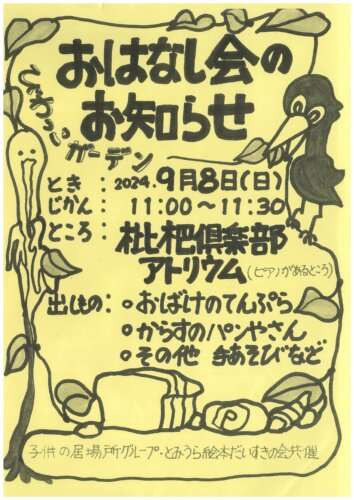 おはなし会の
お知らせ
ガーデン
とき：2024.9月8日(日)
じかん：11:00～11:30
ところ：枇杷倶楽部
アトリウム(ピアノがあるところ)
出しもの：。おばけのてんぷら
。からすのパンやさん
。その他 手あそびなど
子供の居場所グループ・とみうら絵本だいすきの会共催